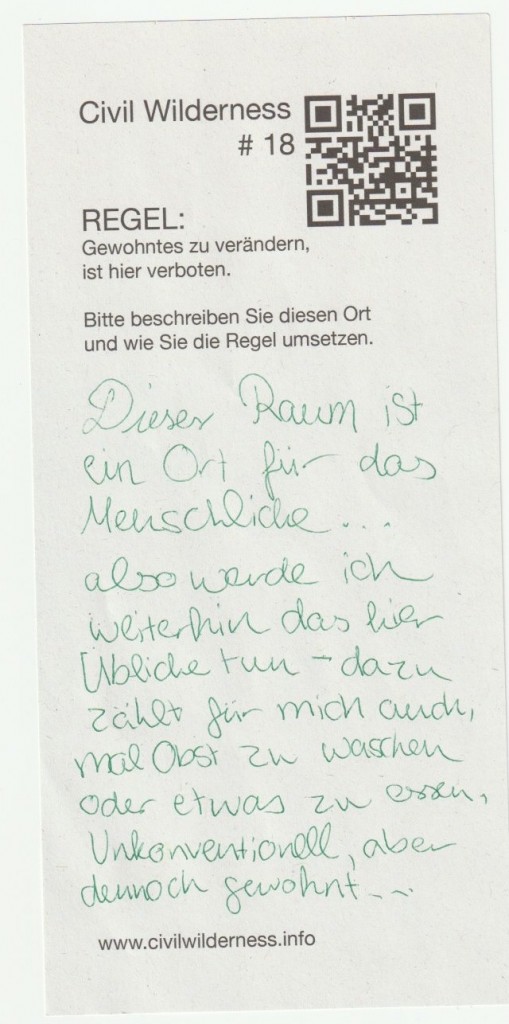 Civil Wilderness
# 18
REGEL:
Gewohntes zu verändern,
ist hier verboten.
Bitte beschreiben Sie diesen Ort
und wie Sie die Regel umsetzen.
Dieser Raum ist
ein Ort für das
Menschliche...
also werde ich
weiterhin das hier
Übliche tun – dazu
zählt für mich auch,
mal Obst zu waschen
oder etwas zu essen,
Unkonventionell, aber
dennoch gewohnt...
www.civilwilderness.info